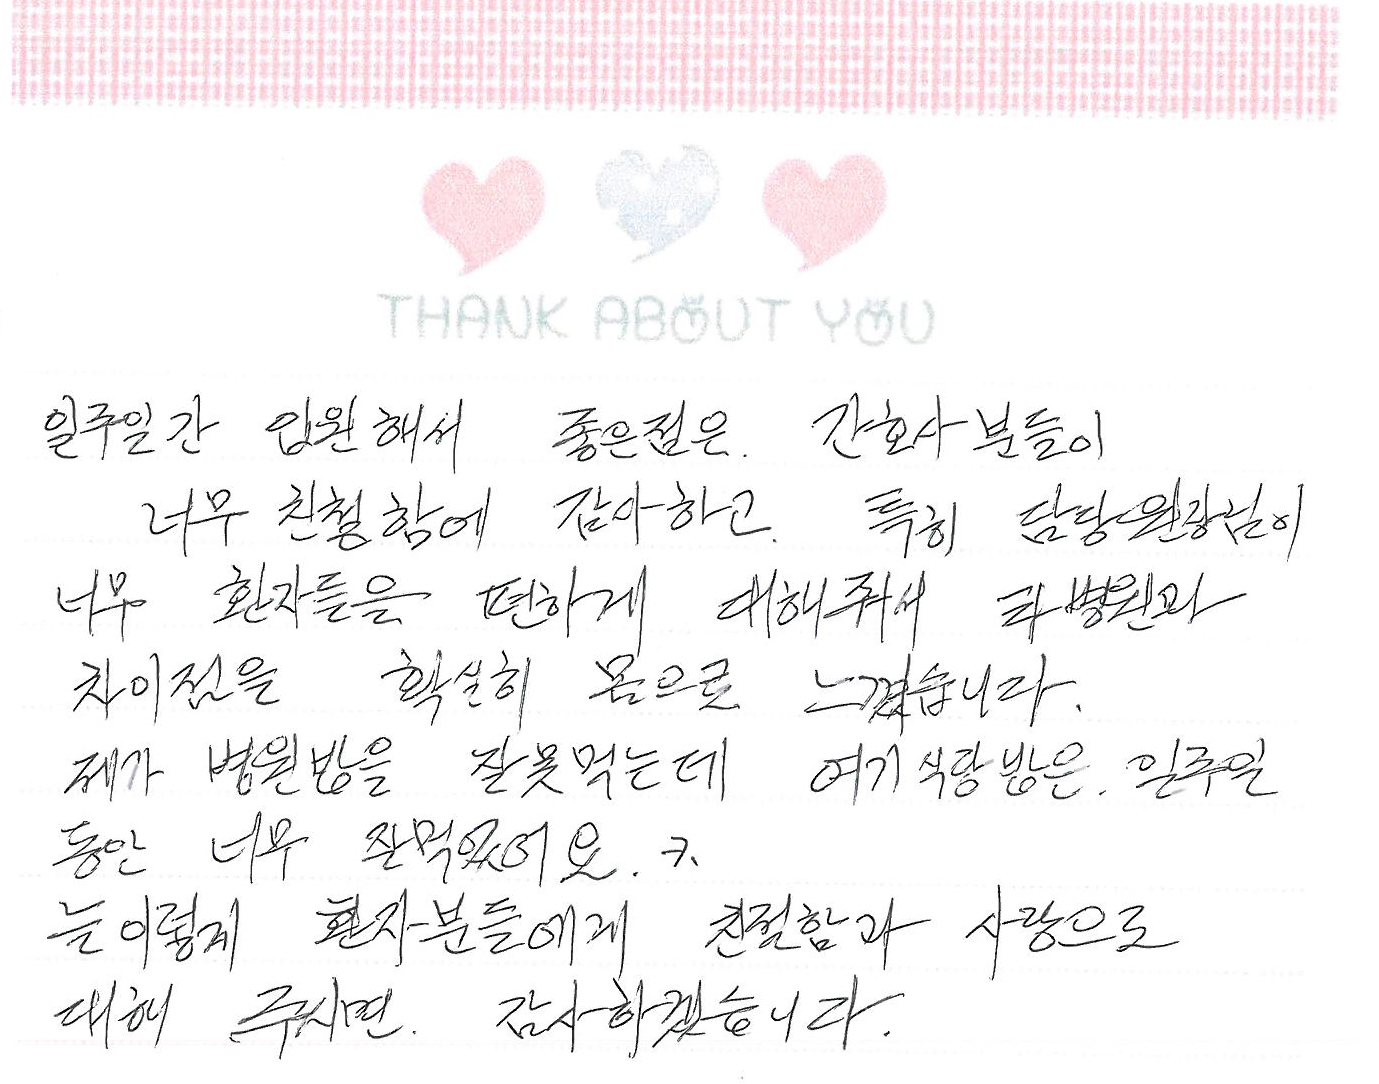 THANK ABOUT YOU
일주일간 입원해서 좋은점은. 간호사분들이
너무 친철함에 감사하고. 특히 담당원장님이
너무 환자들을 편하게 대해줘서 타병원과
차이점을 확실히 몸으로 느꼈습니다.
제가 병원밥을 잘못먹는데 여기식랑밥은. 일주일
동안 너무 잘먹었어요. ㅋ.
늘이렇게 환자분들에게 친절함과 사랑으로
대해 주시면. 감사하겠습니다.